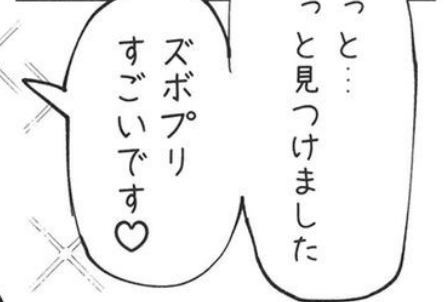 っと…
っと見つけました
ズボプリ
すごいです♡